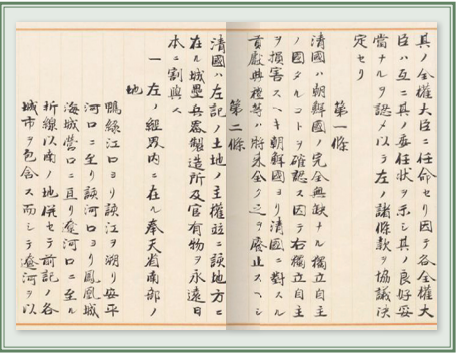 其ノ全權大臣ニ任命セリ因テ各全權大
臣ハ互ニ其ノ委任狀ヲ示シ其ノ良好妥
當ナルヲ認メ以テ左ノ諸條款ヲ協議決
定セリ
第一條
淸國ハ朝鮮國ノ完全無缺ナル獨立自主
ノ國タルコトヲ確認ス因テ右獨立自主
ヲ損害スヘキ朝鮮國ヨリ淸國ニ對スル
貢獻典禮等ハ將來全ク之ヲ廢止スヘシ
第二條
淸國ハ左記ノ土地ノ主權竝ニ該地方ニ
在ル城壘兵器製造所及官有物ヲ永遠日
本ニ割與ス
一 左ノ經界內ニ在ル奉天省南部ノ
地
鴨綠江口ヨリ該江ヲ溯リ安平
河口ニ至リ該河口ヨリ鳳凰城
海城營口ニ亘リ遼河口ニ至ル
折線以南ノ地併セテ前記ノ各
城市ヲ包含ス而シテ遼河ヲ以